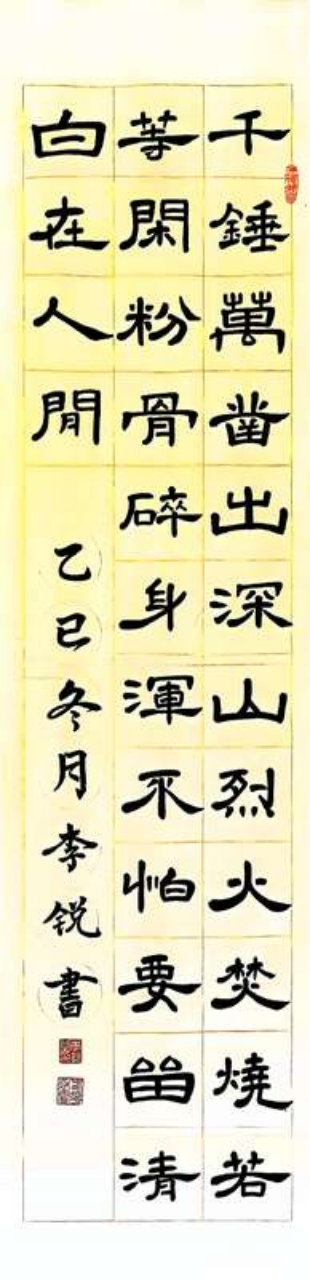 千錘萬凿出深山烈火焚燒若
等閑粉骨碎身渾不怕要畱清
白在人間
乙巳冬月李锐書